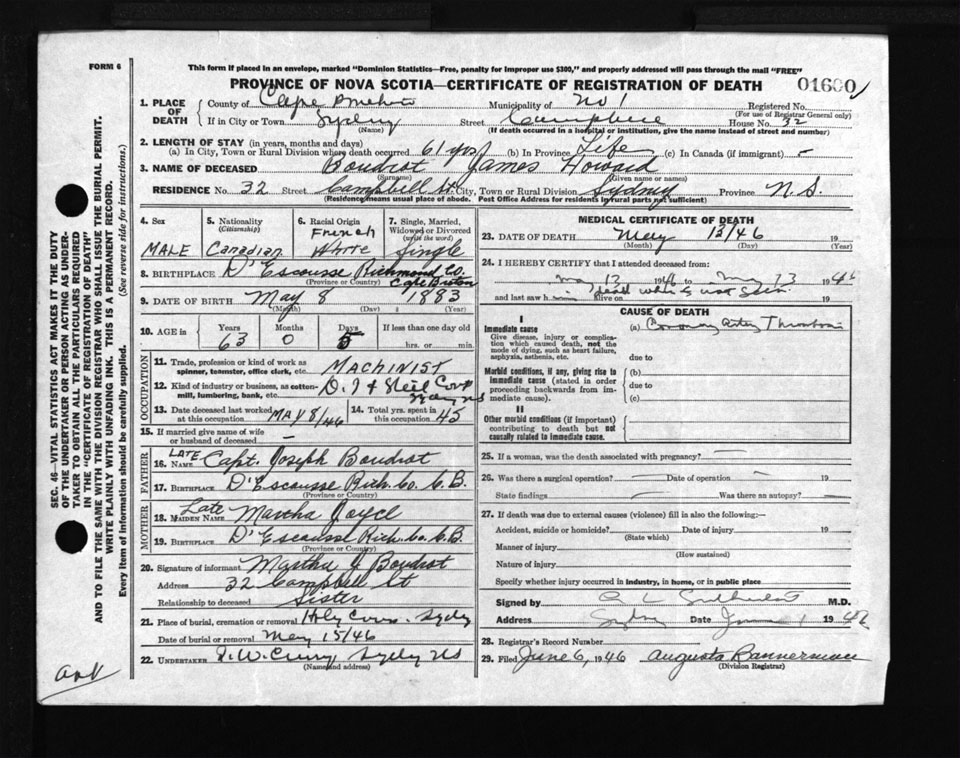 FORM 6
This form if placed in an envelope, marked "Dominion Statistics—Free, penalty for improper use $300," and properly addressed will pass through the mail "FREE"
PROVINCE OF NOVA SCOTIA—CERTIFICATE OF REGISTRATION OF DEATH
01600
1. PLACE OF DEATH
County of Cape Breton Municipality of No 1 Registered No.
(For use of Registrar General only)
If in City or Town Sydney Street Campbell House No. 32
(Name) (If death occurred in a hospital or institution, give the name instead of street and number)
2. LENGTH OF STAY (in years, months and days)
(a) In City, Town or Rural Division where death occurred 61 yrs (b) In Province Life (c) In Canada (if immigrant) -
3. NAME OF DECEASED Boudrot James Howard
(Surname) (Given name or names)
RESIDENCE No. 32 Street Campbell St. City, Town or Rural Division Sydney Province N.S.
(Residence means usual place of abode. Post Office Address for residents in rural parts not sufficient)
4. Sex
MALE
5. Nationality
(Citizenship)
Canadian
6. Racial Origin
French
White
7. Single, Married, Widowed or Divorced
(write the word)
Single
8. BIRTHPLACE D'Escousse Richmond Co.
(Province or Country) Cape Breton
9. DATE OF BIRTH May 8 1883
(Month) (Day) (Year)
10. AGE in
Years Months Days If less than one day old
63 0 5 hrs. or min.
OCCUPATION
11. Trade, profession or kind of work as spinner, teamster, office clerk, etc. MACHINIST
12. Kind of industry or business, as cotton-mill, lumbering, bank, etc. D. I & Steel Corp
Sydney NS
13. Date deceased last worked at this occupation MAY 8/46
14. Total yrs. spent in this occupation 45
15. If married give name of wife or husband of deceased -
FATHER
16. LATE NAME Capt. Joseph Boudrot
17. BIRTHPLACE D'Escousse Rich. Co. C.B.
(Province or Country)
MOTHER
18. Late MAIDEN NAME Martha Joyce
19. BIRTHPLACE D'Escousse Rich. Co. C.B.
(Province or Country)
20. Signature of informant Martha J Boudrot
Address 32 Campbell St
Relationship to deceased Sister
21. Place of burial, cremation or removal Holy Cross. Sydney
Date of burial or removal May 15/46
22. UNDERTAKER Sydney NS
(Name and address)
MEDICAL CERTIFICATE OF DEATH
23. DATE OF DEATH May 13/46 19
(Month) (Day) (Year)
24. I HEREBY CERTIFY that I attended deceased from:
May 13 1946 to May 13 1946
and last saw h alive on 19
CAUSE OF DEATH
I
Immediate cause
Give disease, injury or complication which caused death, not the mode of dying, such as heart failure, asphyxia, asthenia, etc.
(a) Coronary Artery Thrombosis
due to
Morbid conditions, if any, giving rise to immediate cause (stated in order proceeding backwards from immediate cause).
(b)
due to
(c)
II
Other morbid conditions (if important) contributing to death but not causally related to immediate cause.
25. If a woman, was the death associated with pregnancy?
26. Was there a surgical operation? Date of operation 19
State findings Was there an autopsy?
27. If death was due to external causes (violence) fill in also the following:—
Accident, suicide or homicide? Date of injury 19
(State which)
Manner of injury
(How sustained)
Nature of injury
Specify whether injury occurred in industry, in home, or in public place
Signed by M.D.
Address Sydney Date 1946
28. Registrar's Record Number
29. Filed June 6, 1946 Augusta Bannerman
(Division Registrar)
SEC. 46—VITAL STATISTICS ACT MAKES IT THE DUTY
OF THE UNDERTAKER OR PERSON ACTING AS UNDER-
TAKER TO OBTAIN ALL THE PARTICULARS REQUIRED
IN THE "CERTIFICATE OF REGISTRATION OF DEATH"
AND TO FILE THE SAME WITH THE DIVISION REGISTRAR WHO SHALL ISSUE THE BURIAL PERMIT.
WRITE PLAINLY WITH UNFADING INK. THIS IS A PERMANENT RECORD.
Every item of information should be carefully supplied. (See reverse side for instructions.)